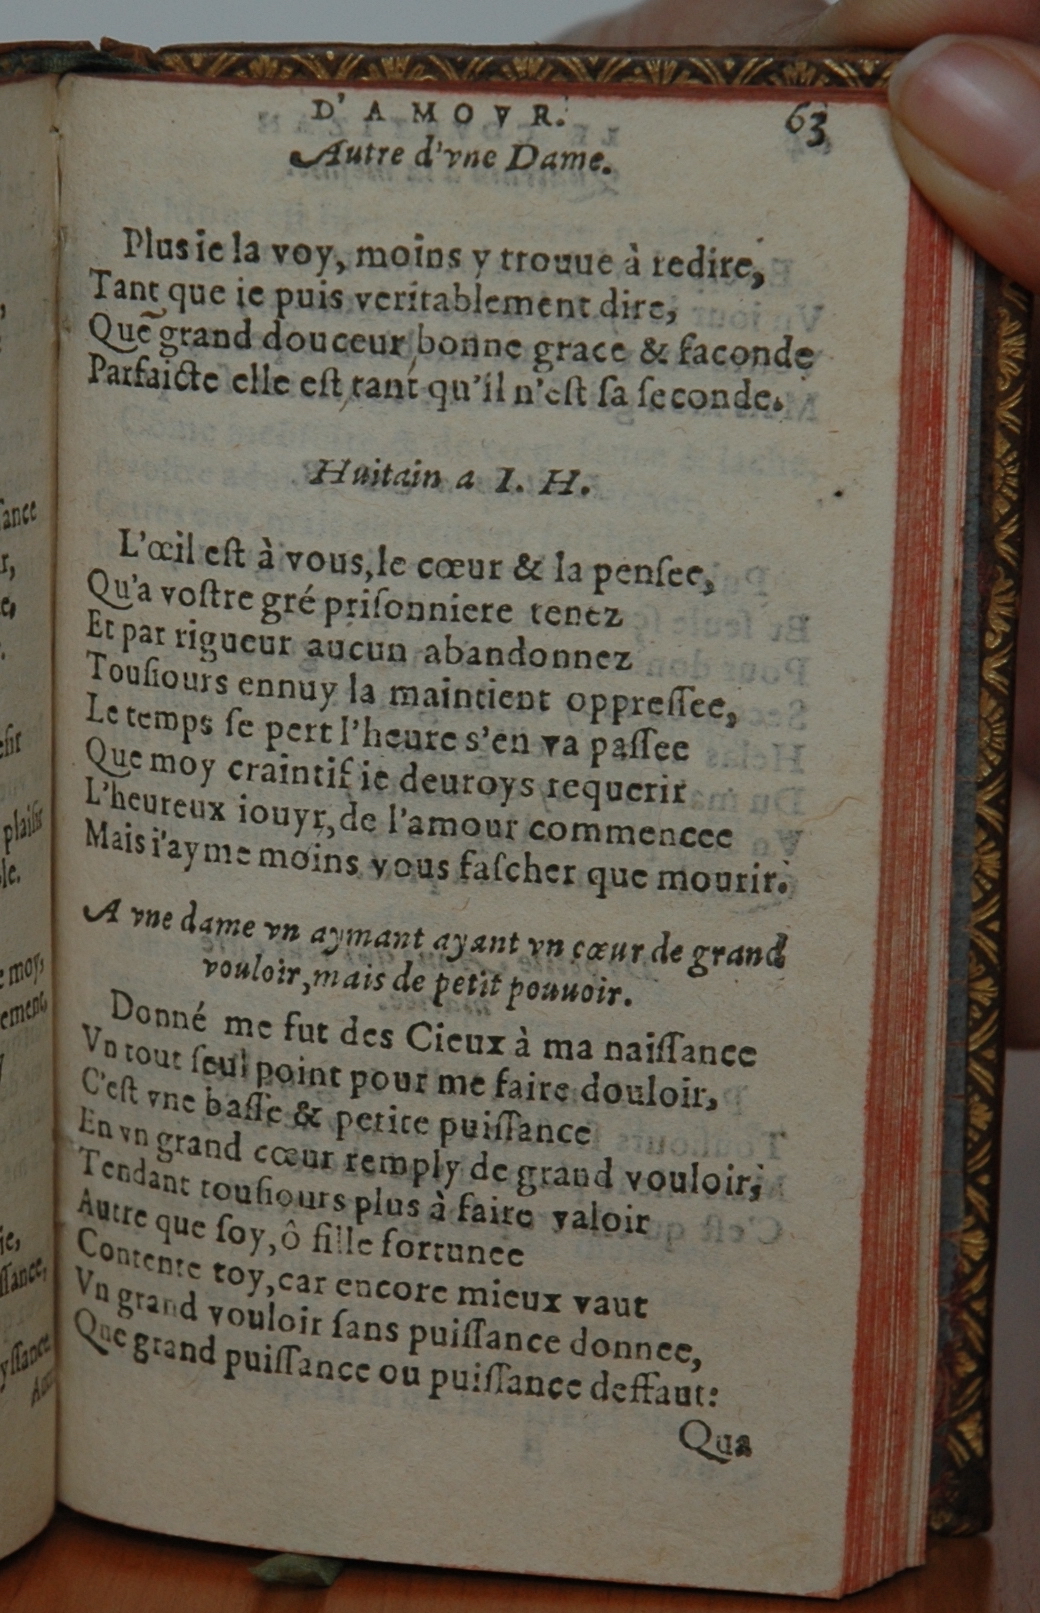 D'AMOVR. 63
Autre d'vne Dame.
Plus ie la voy, moins y trouue à redire,
Tant que ie puis veritablement dire,
Quẽ grand douceur bonne grace & faconde
Parfaicte elle eſt tant qu'il n'eſt ſa ſeconde.
Huitain a I. H.
L'œil eſt à vous, le cœur & la penſee,
Qu'a voſtre gré priſonniere tenez
Et par rigueur aucun abandonnez
Touſiours ennuy la maintient oppreſſee,
Le temps ſe pert l'heure s'en va paſſee
Que moy craintif ie deuroys requerir
L'heureux iouyr, de l'amour commencee
Mais i'ayme moins vous faſcher que mourir.
A vne dame vn aymant ayant vn cœur de grand
vouloir, mais de petit pouuoir.
Donné me fut des Cieux à ma naiſſance
Vn tout ſeul point pour me faire douloir,
C'eſt vne baſſe & petite puiſſance
En vn grand cœur remply de grand vouloir;
Tendant touſiours plus à faire valoir
Autre que ſoy, ô fille fortunee
Contente toy, car encore mieux vaut
Vn grand vouloir ſans puiſſance donnee,
Que grand puiſſance ou puiſſance deffaut:
Qua
ſance
r,
plaiſir
le.
moy,
ement,
ie,
ſſance,
yſſance